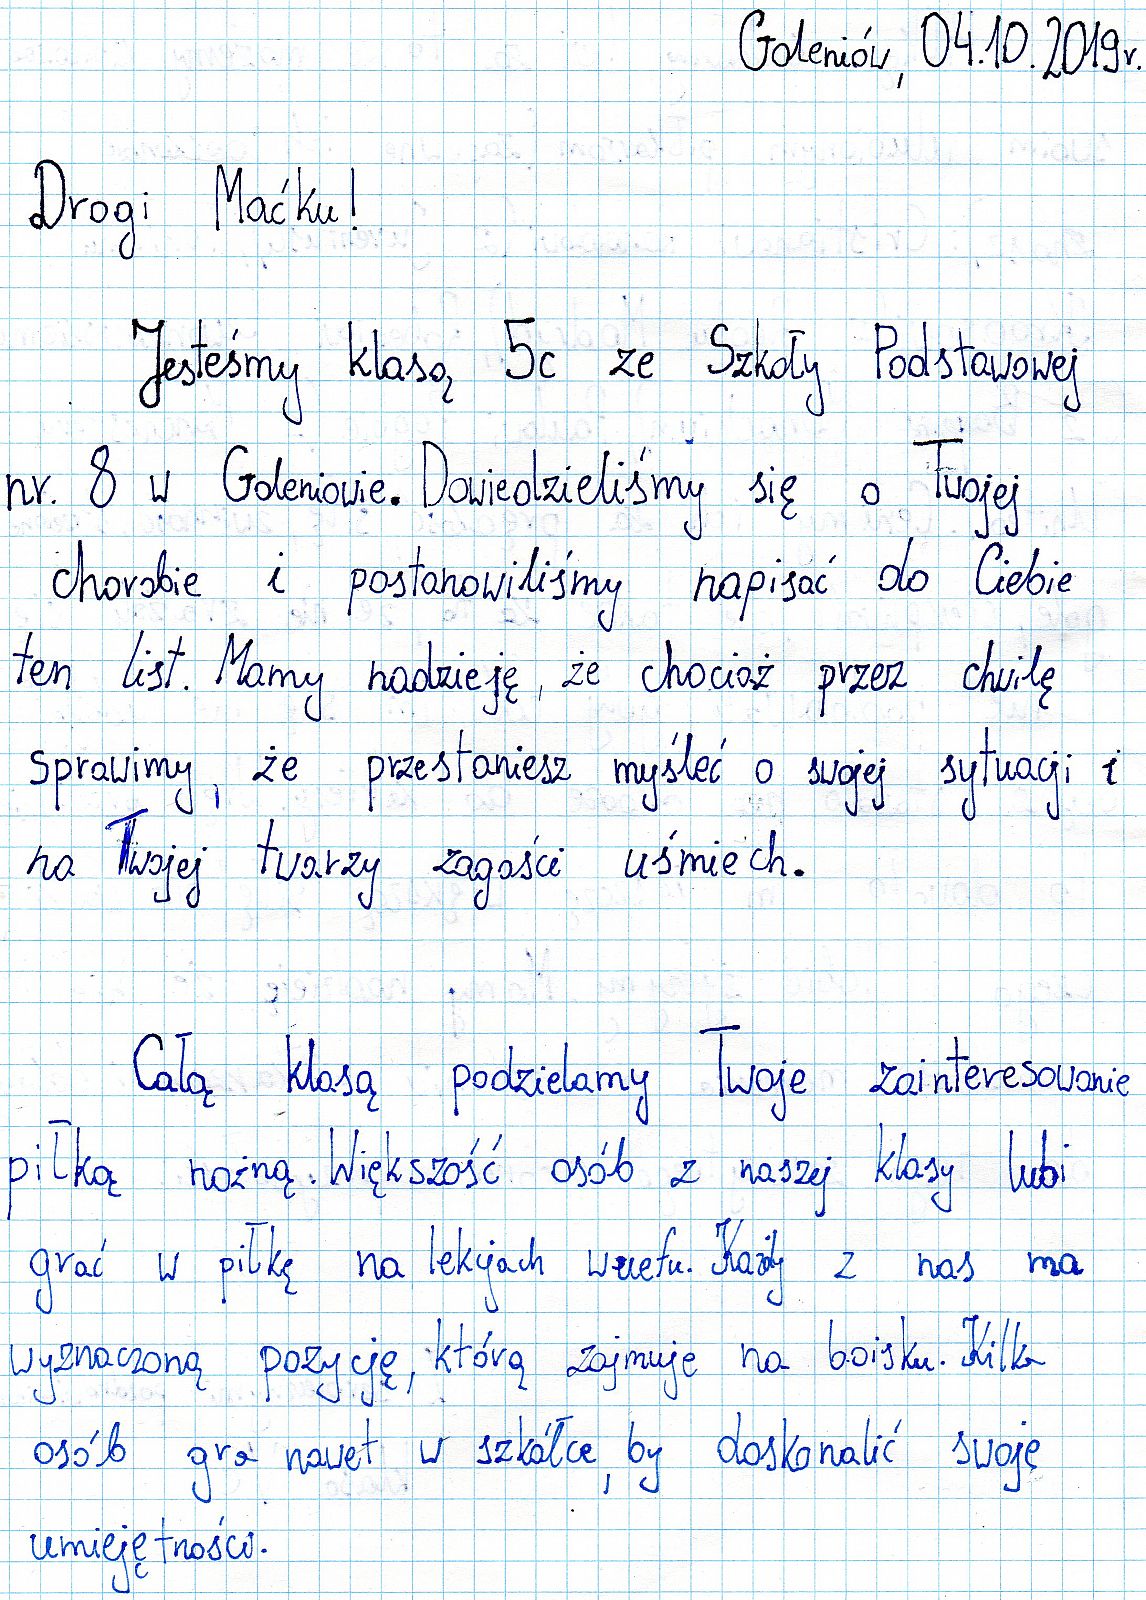 Goleniów, 04.10.2019r.
Drogi Maćku!
Jesteśmy klasą 5c ze Szkoły Podstawowej
nr. 8 w Goleniowie. Dowiedzieliśmy się o Twojej
chorobie i postanowiliśmy napisać do Ciebie
ten list. Mamy nadzieję, że chociaż przez chwilę
sprawimy, że przestaniesz myśleć o swojej sytuacji i
na Twojej twarzy zagości uśmiech.
Całą klasą podzielamy Twoje zainteresowanie
piłką nożną. Większość osób z naszej klasy lubi
grać w piłkę na lekcjach wuefu. Każdy z nas ma
wyznaczoną pozycję, którą zajmuje na boisku. Kilka
osób gra nawet w szkółce, by doskonalić swoję
umiejętności.